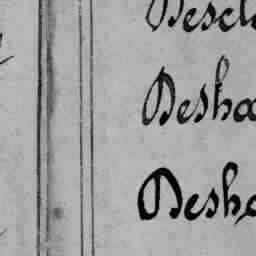 Descl
Desha
Desha